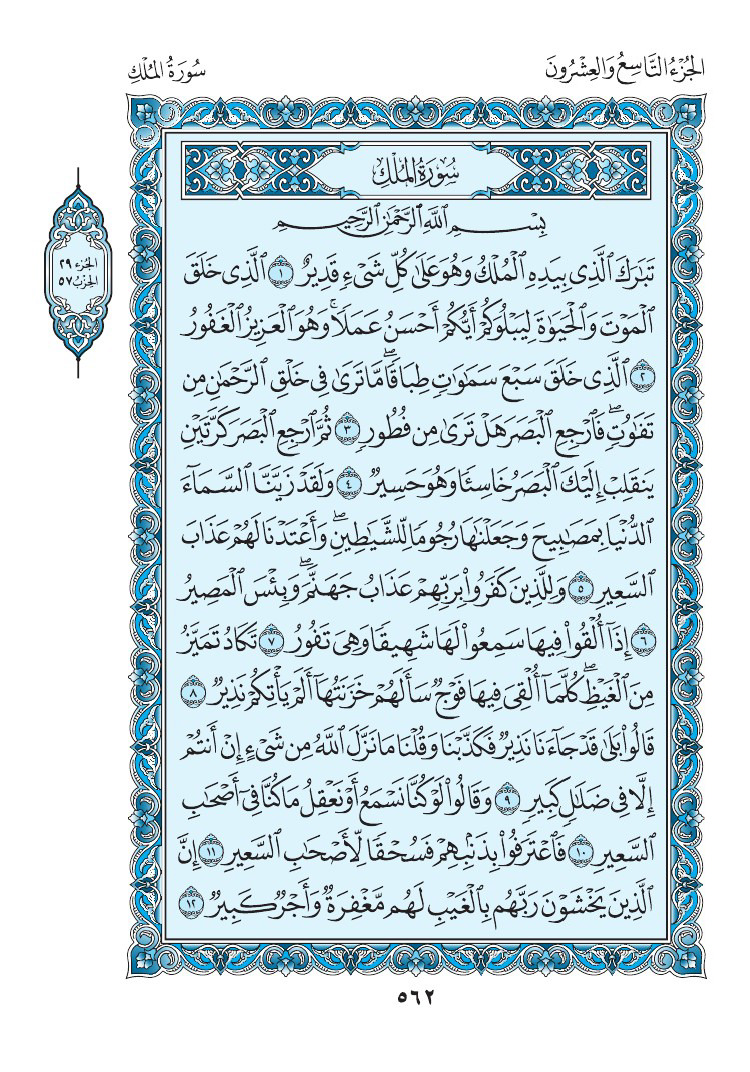 الجُزْءُ التَّاسِعُ وَالعِشْرُونَ
سُورَةُ المُلْكِ
سُورَةُ المُلْكِ
الجُزء ٢٩
الحِزْب ٥٧
بِسْمِ ٱللَّهِ ٱلرَّحْمَٰنِ ٱلرَّحِيمِ
تَبَٰرَكَ ٱلَّذِى بِيَدِهِ ٱلْمُلْكُ وَهُوَ عَلَىٰ كُلِّ شَىْءٍ قَدِيرٌ ١ ٱلَّذِى خَلَقَ
ٱلْمَوْتَ وَٱلْحَيَوٰةَ لِيَبْلُوَكُمْ أَيُّكُمْ أَحْسَنُ عَمَلًا ۚ وَهُوَ ٱلْعَزِيزُ ٱلْغَفُورُ
٢ ٱلَّذِى خَلَقَ سَبْعَ سَمَٰوَٰتٍ طِبَاقًا ۖ مَّا تَرَىٰ فِى خَلْقِ ٱلرَّحْمَٰنِ مِن
تَفَٰوُتٍ ۖ فَٱرْجِعِ ٱلْبَصَرَ هَلْ تَرَىٰ مِن فُطُورٍ ٣ ثُمَّ ٱرْجِعِ ٱلْبَصَرَ كَرَّتَيْنِ
يَنقَلِبْ إِلَيْكَ ٱلْبَصَرُ خَاسِئًا وَهُوَ حَسِيرٌ ٤ وَلَقَدْ زَيَّنَّا ٱلسَّمَآءَ
ٱلدُّنْيَا بِمَصَٰبِيحَ وَجَعَلْنَٰهَا رُجُومًا لِّلشَّيَٰطِينِ ۖ وَأَعْتَدْنَا لَهُمْ عَذَابَ
ٱلسَّعِيرِ ٥ وَلِلَّذِينَ كَفَرُوا۟ بِرَبِّهِمْ عَذَابُ جَهَنَّمَ ۖ وَبِئْسَ ٱلْمَصِيرُ
٦ إِذَآ أُلْقُوا۟ فِيهَا سَمِعُوا۟ لَهَا شَهِيقًا وَهِىَ تَفُورُ ٧ تَكَادُ تَمَيَّزُ
مِنَ ٱلْغَيْظِ ۖ كُلَّمَآ أُلْقِىَ فِيهَا فَوْجٌ سَأَلَهُمْ خَزَنَتُهَآ أَلَمْ يَأْتِكُمْ نَذِيرٌ ٨
قَالُوا۟ بَلَىٰ قَدْ جَآءَنَا نَذِيرٌ فَكَذَّبْنَا وَقُلْنَا مَا نَزَّلَ ٱللَّهُ مِن شَىْءٍ إِنْ أَنتُمْ
إِلَّا فِى ضَلَٰلٍ كَبِيرٍ ٩ وَقَالُوا۟ لَوْ كُنَّا نَسْمَعُ أَوْ نَعْقِلُ مَا كُنَّا فِىٓ أَصْحَٰبِ
ٱلسَّعِيرِ ١٠ فَٱعْتَرَفُوا۟ بِذَنۢبِهِمْ فَسُحْقًا لِّأَصْحَٰبِ ٱلسَّعِيرِ ١١ إِنَّ
ٱلَّذِينَ يَخْشَوْنَ رَبَّهُم بِٱلْغَيْبِ لَهُم مَّغْفِرَةٌ وَأَجْرٌ كَبِيرٌ ١٢
٥٦٢